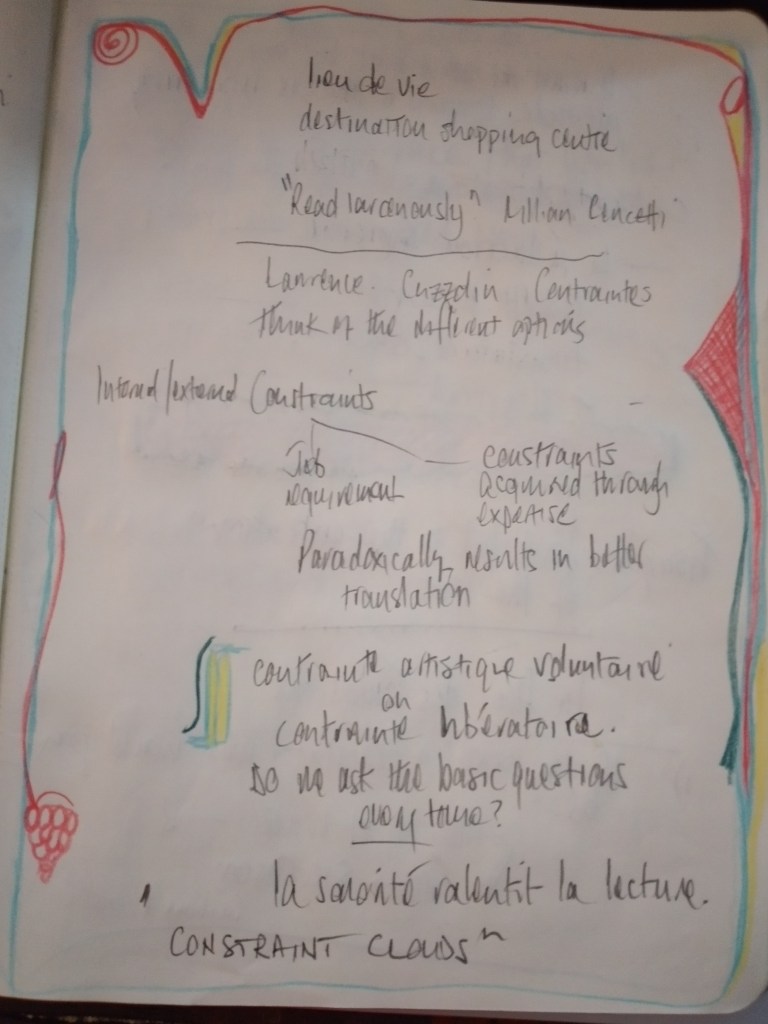 lieu de vie
destination shopping centre
"Read larcenously" Lillian
Lawrence. Contraintes
think of the different options
Internal/external Constraints
Job
requirement
constraints
acquired through
expertise
Paradoxically results in better
translation
contrainte artistique volontaire
ou
contrainte libératoire.
Do we ask the basic questions
every time?
la sonorité ralentit la lecture.
"CONSTRAINT CLOUDS"